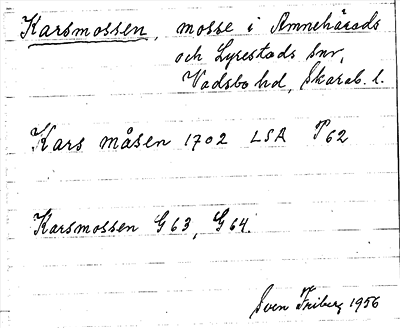 Karsmossen, mosse i Amnehärads
och Lyrestads snr,
Vadsbo hd, Skarab. l.
Kars måsen 1702 LSA P62
Karsmossen G63, G64.
Sven Friberg 1956